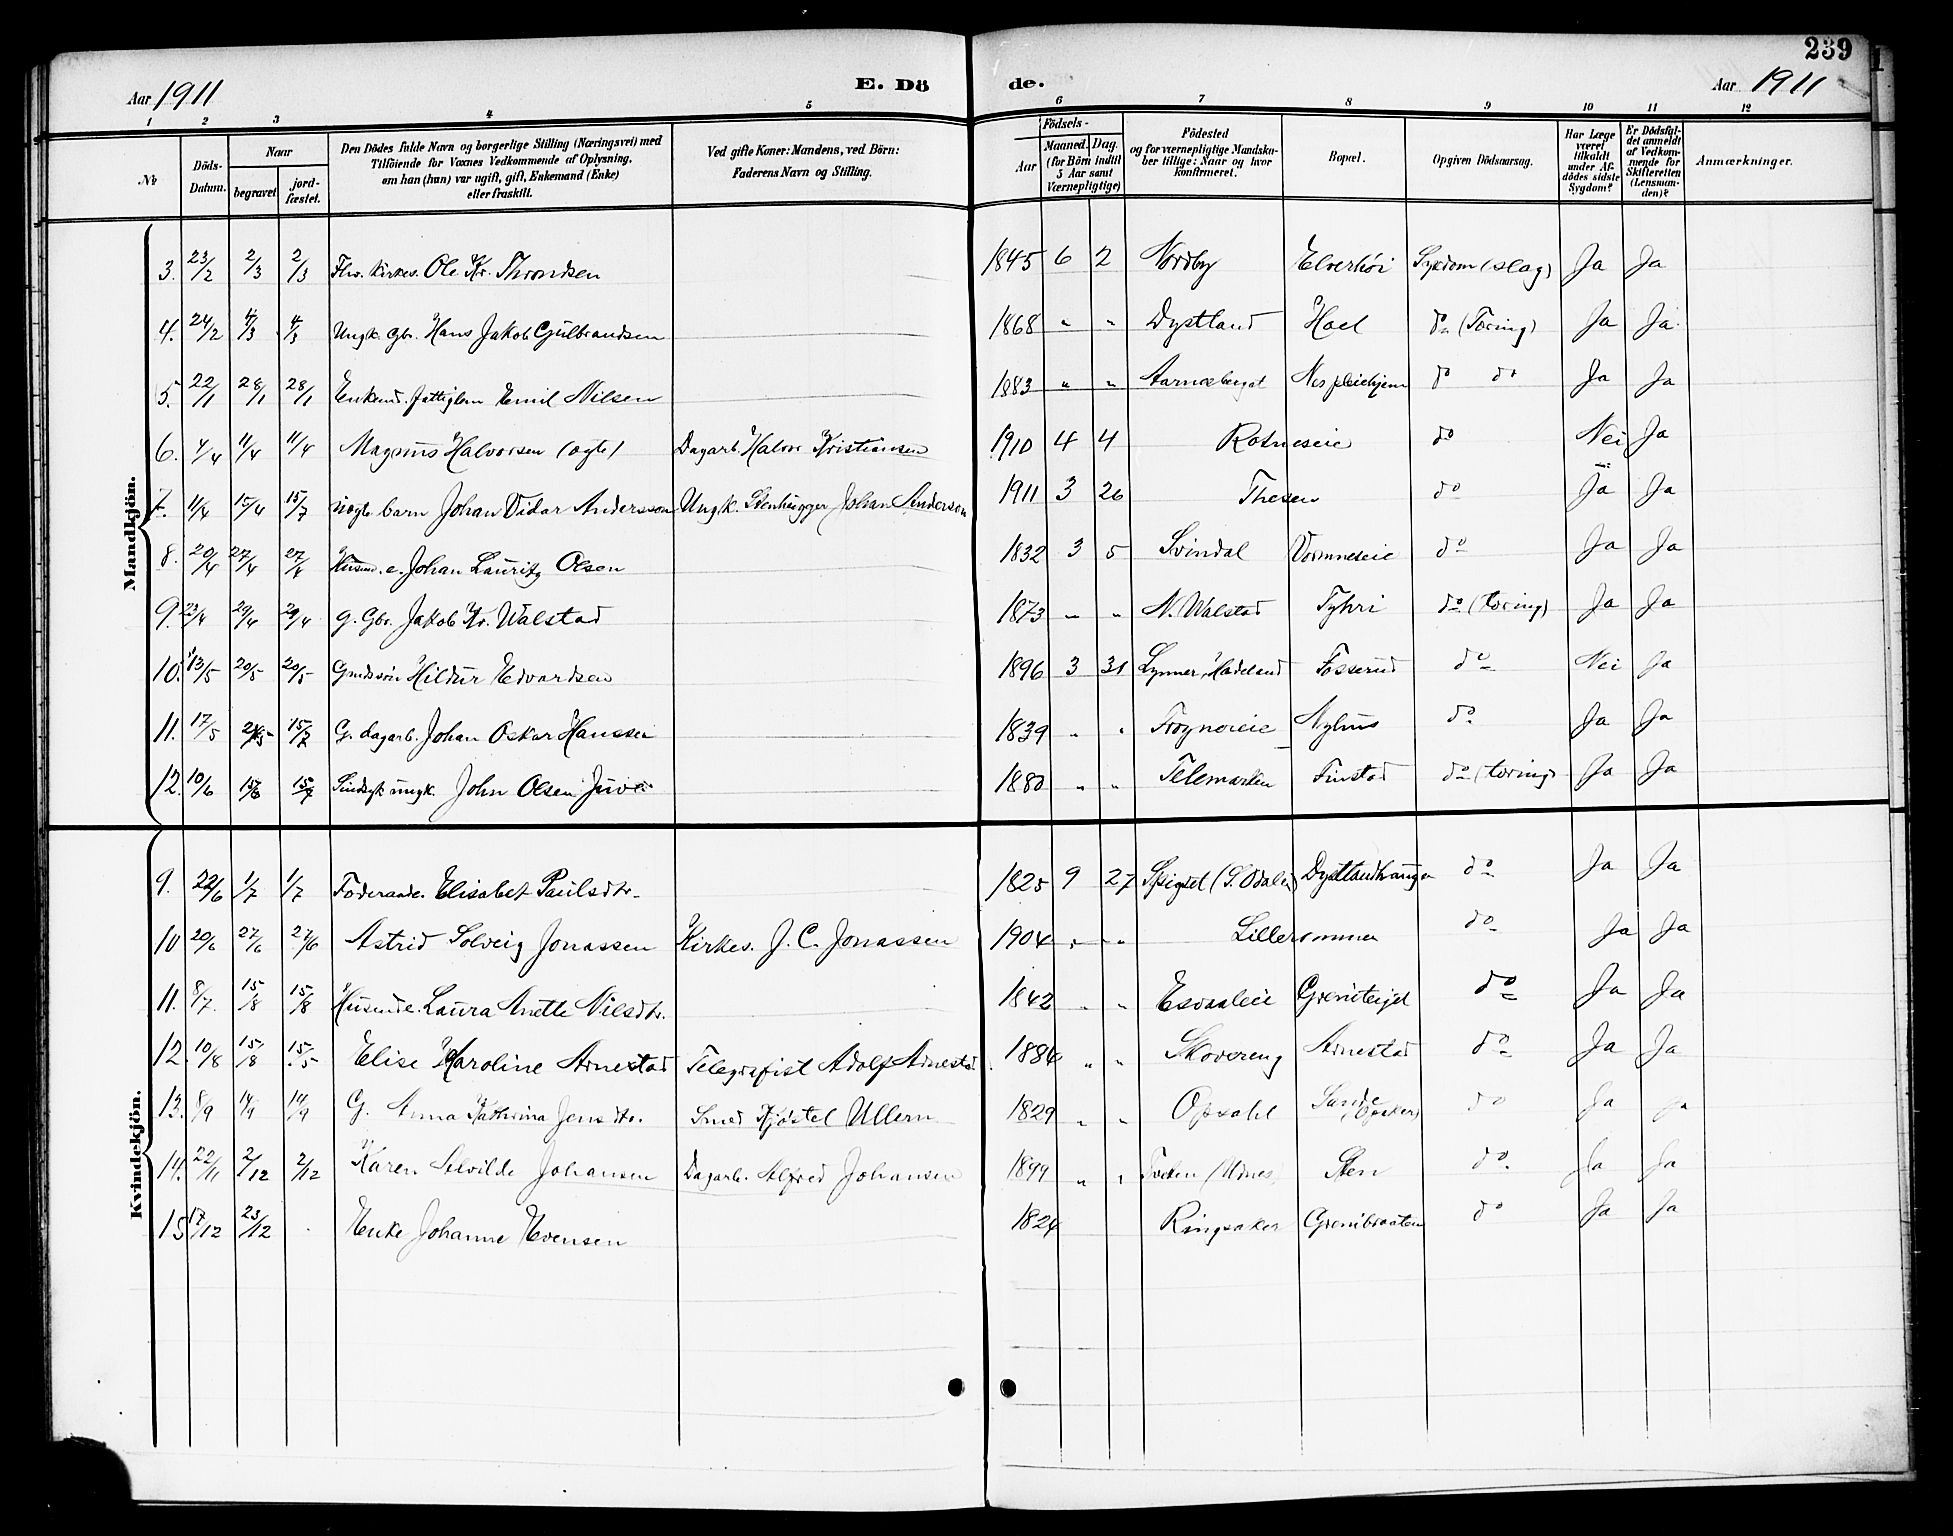 239
Aar 1911 E. Dö de. Aar 1911
1 2 3 4 5 6 7 8 9 10 11 12
No Döds-Datum. Naar begravet jordfæstet. Den Dödes fulde Navn og borgerlige Stilling (Næringsvei) med Tilföiende for Voxnes Vedkommende af Oplysning, om han (hun) var ugift, gift, Enkemand (Enke) eller fraskilt. Ved gifte Koner: Mandens, ved Börn: Faderens Navn og Stilling. Födsels- Aar Maaned. Dag. (for Börn indtil 5 Aar samt Værnepligtige) Födested og for værnepligtige Mandskaber tillige: Naar og hvor konfirmeret. Bopæl. Opgiven Dödsaarsag. Har Læge været tilkaldt under Afdödes sidste Sygdom? Er Dödsfaldet anmeldt af Vedkommende for Skifteretten (Lensmanden)? Anmærkninger.
Mandkjön.
3. 23/2 2/3 2/3 Kirkes. Ole Kr. Throndsen 1845 6 2 Nordby Elverhöi Sygdom (slag) Ja Ja
4. 24/2 4/3 4/3 Ungk. Gbr. Hans Jakob Gulbrandsen 1868 " " Dystland Hoel do (Tæring) Ja Ja
5. 22/1 28/1 28/1 Enkemd. fattiglem Emil Nilsen 1883 " " Aarnesberget Nes pleiehjem do do Ja Ja
6. 4/4 11/4 11/4 Magnus Halvorsen (ægte) Dagarb. Halvor Kristiansen 1910 4 4 Rotneseie do Nei Ja
7. 11/4 15/4 15/7 uægte barn Johan Vidar Andersson Ungk. Stenhugger Johan Anderson 1911 3 26 Thesen do Ja Ja
8. 20/4 27/4 27/4 Husmd. e. Johan Lauritz Olsen 1832 3 5 Svindal Vormneseie do Ja Ja
9. 23/4 29/4 29/4 g. Gbr. Jakob Kr. Walstad 1873 " " N. Walstad Tyhri do (tæring) Ja Ja
10. 13/5 20/5 20/5 Hildur Edvardsen 1896 3 31 Lynner, Hadeland Fosserud do Nei Ja
11. 17/5 15/7 G. dagarb. Johan Oskar Hanssen 1839 " " Frogneieie Nyhus do Ja Ja
12. 10/6 15/7 Sindsyk ungk. John Olsen Juve 1880 " " Telemarken Finstad do (tæring) Ja Ja
Kvindekjön.
9. 22/6 1/7 1/7 Föderaade. Elisabet Paulsdtr. 1825 9 27 (S. Odalen) Dystlandhaugen do Ja Ja
10 20/6 27/6 27/6 Astrid Solveig Jonassen Kirkes. J. C. Jonassen 1904 " " Lillerommen do Ja Ja
11. 8/7 15/8 15/8 Husmde. Laura Anette Nilsdtr. 1842 " " Esvaaleie Greniteiget do Ja Ja
12. 10/8 15/8 15/5 Elise Karoline Arnestad Telegrafist Adolf Arnestad 1884 " " Skovereng Arnestad do Ja Ja
13. 8/9 14/9 14/9 G. Anna Kathrina Jensdtr. Smed Kjöstel Ullern 1829 " " Opsahl Sande (Opaker) do Ja Ja
14. 22/11 2/12 2/12 Karen Alvilde Johansen Dagarb. Alfred Johansen 1899 " " (Udnes) Sten do Ja Ja
15 17/12 23/12 Enke Johanne Evensen 1824 Ringsaker Grenibraaten do Ja Ja